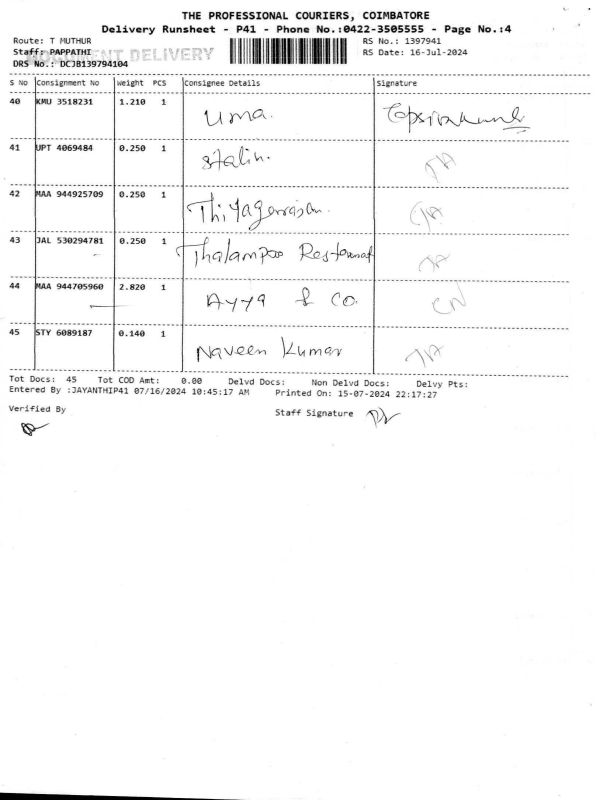 THE PROFESSIONAL COURIERS, COIMBATORE
Delivery Runsheet - P41 - Phone No.:0422-3505555 - Page No.:4
Route: T MUTHUR
RS No.: 1397941
Staff: PAPPATHI
DOCUMENT DELIVERY
RS Date: 16-Jul-2024
DRS No.: DCJB139794104
S No Consignment No Weight PCS Consignee Details Signature
40 KMU 3518231 1.210 1 Uma.
41 UPT 4069484 0.250 1 Stalin. TA
42 MAA 944925709 0.250 1 Thiyagarajan. TA
43 JAL 530294781 0.250 1 Thalampoo Restaurant TA
44 MAA 944705960 2.820 1 Ayya & Co. CN
45 STY 6089187 0.140 1 Naveen Kumar TA
Tot Docs: 45 Tot COD Amt: 0.00 Delvd Docs: Non Delvd Docs: Delvy Pts:
Entered By :JAYANTHIP41 07/16/2024 10:45:17 AM Printed On: 15-07-2024 22:17:27
Verified By
Staff Signature